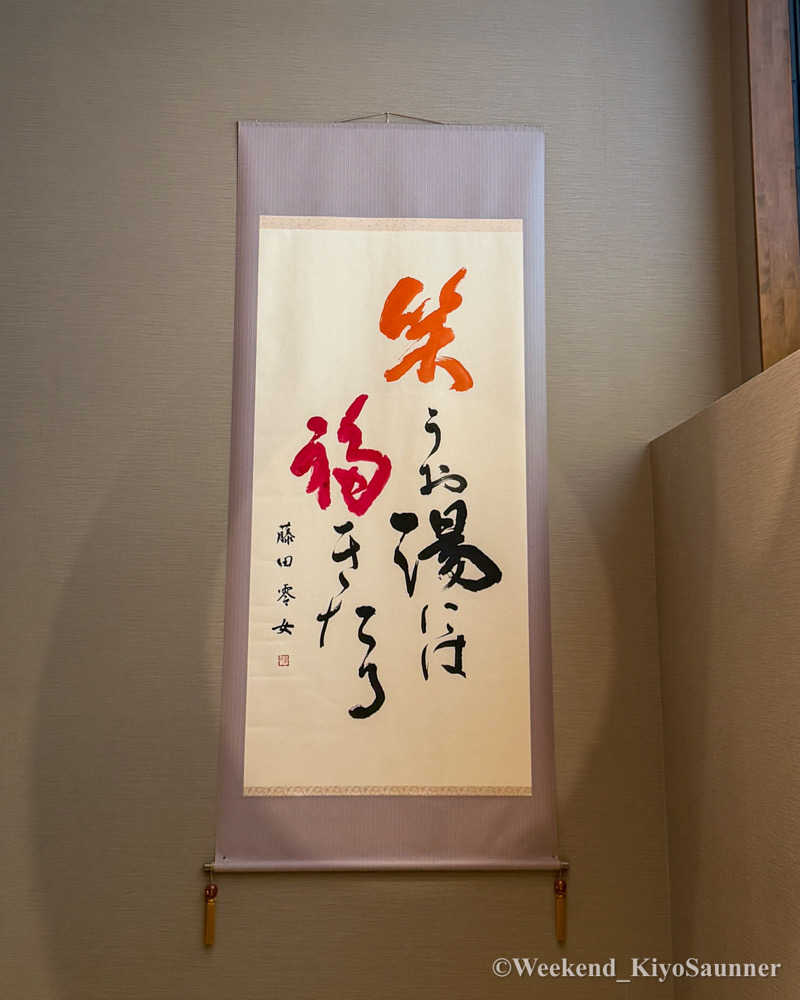 笑うお湯には
福きたる
藤田零女
©Weekend_KiyoSaunner